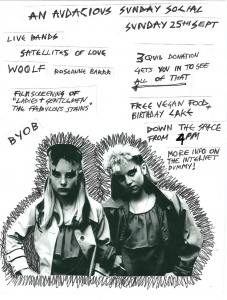 AN AUDACIOUS SUNDAY SOCIAL
SUNDAY 25TH SEPT
LIVE BANDS
SATELLITES OF LOVE
WOOLF ROSEANNE BARRR
FILM SCREENING OF
"LADIES & GENTLEMEN
THE FABULOUS STAINS"
3 QUID DONATION
GETS YOU IN TO SEE
ALL OF THAT
FREE VEGAN FOOD +
BIRTHDAY CAKE
BYOB
DOWN THE SPACE
FROM 4PM
MORE INFO ON
THE INTERNET
DUMMY!